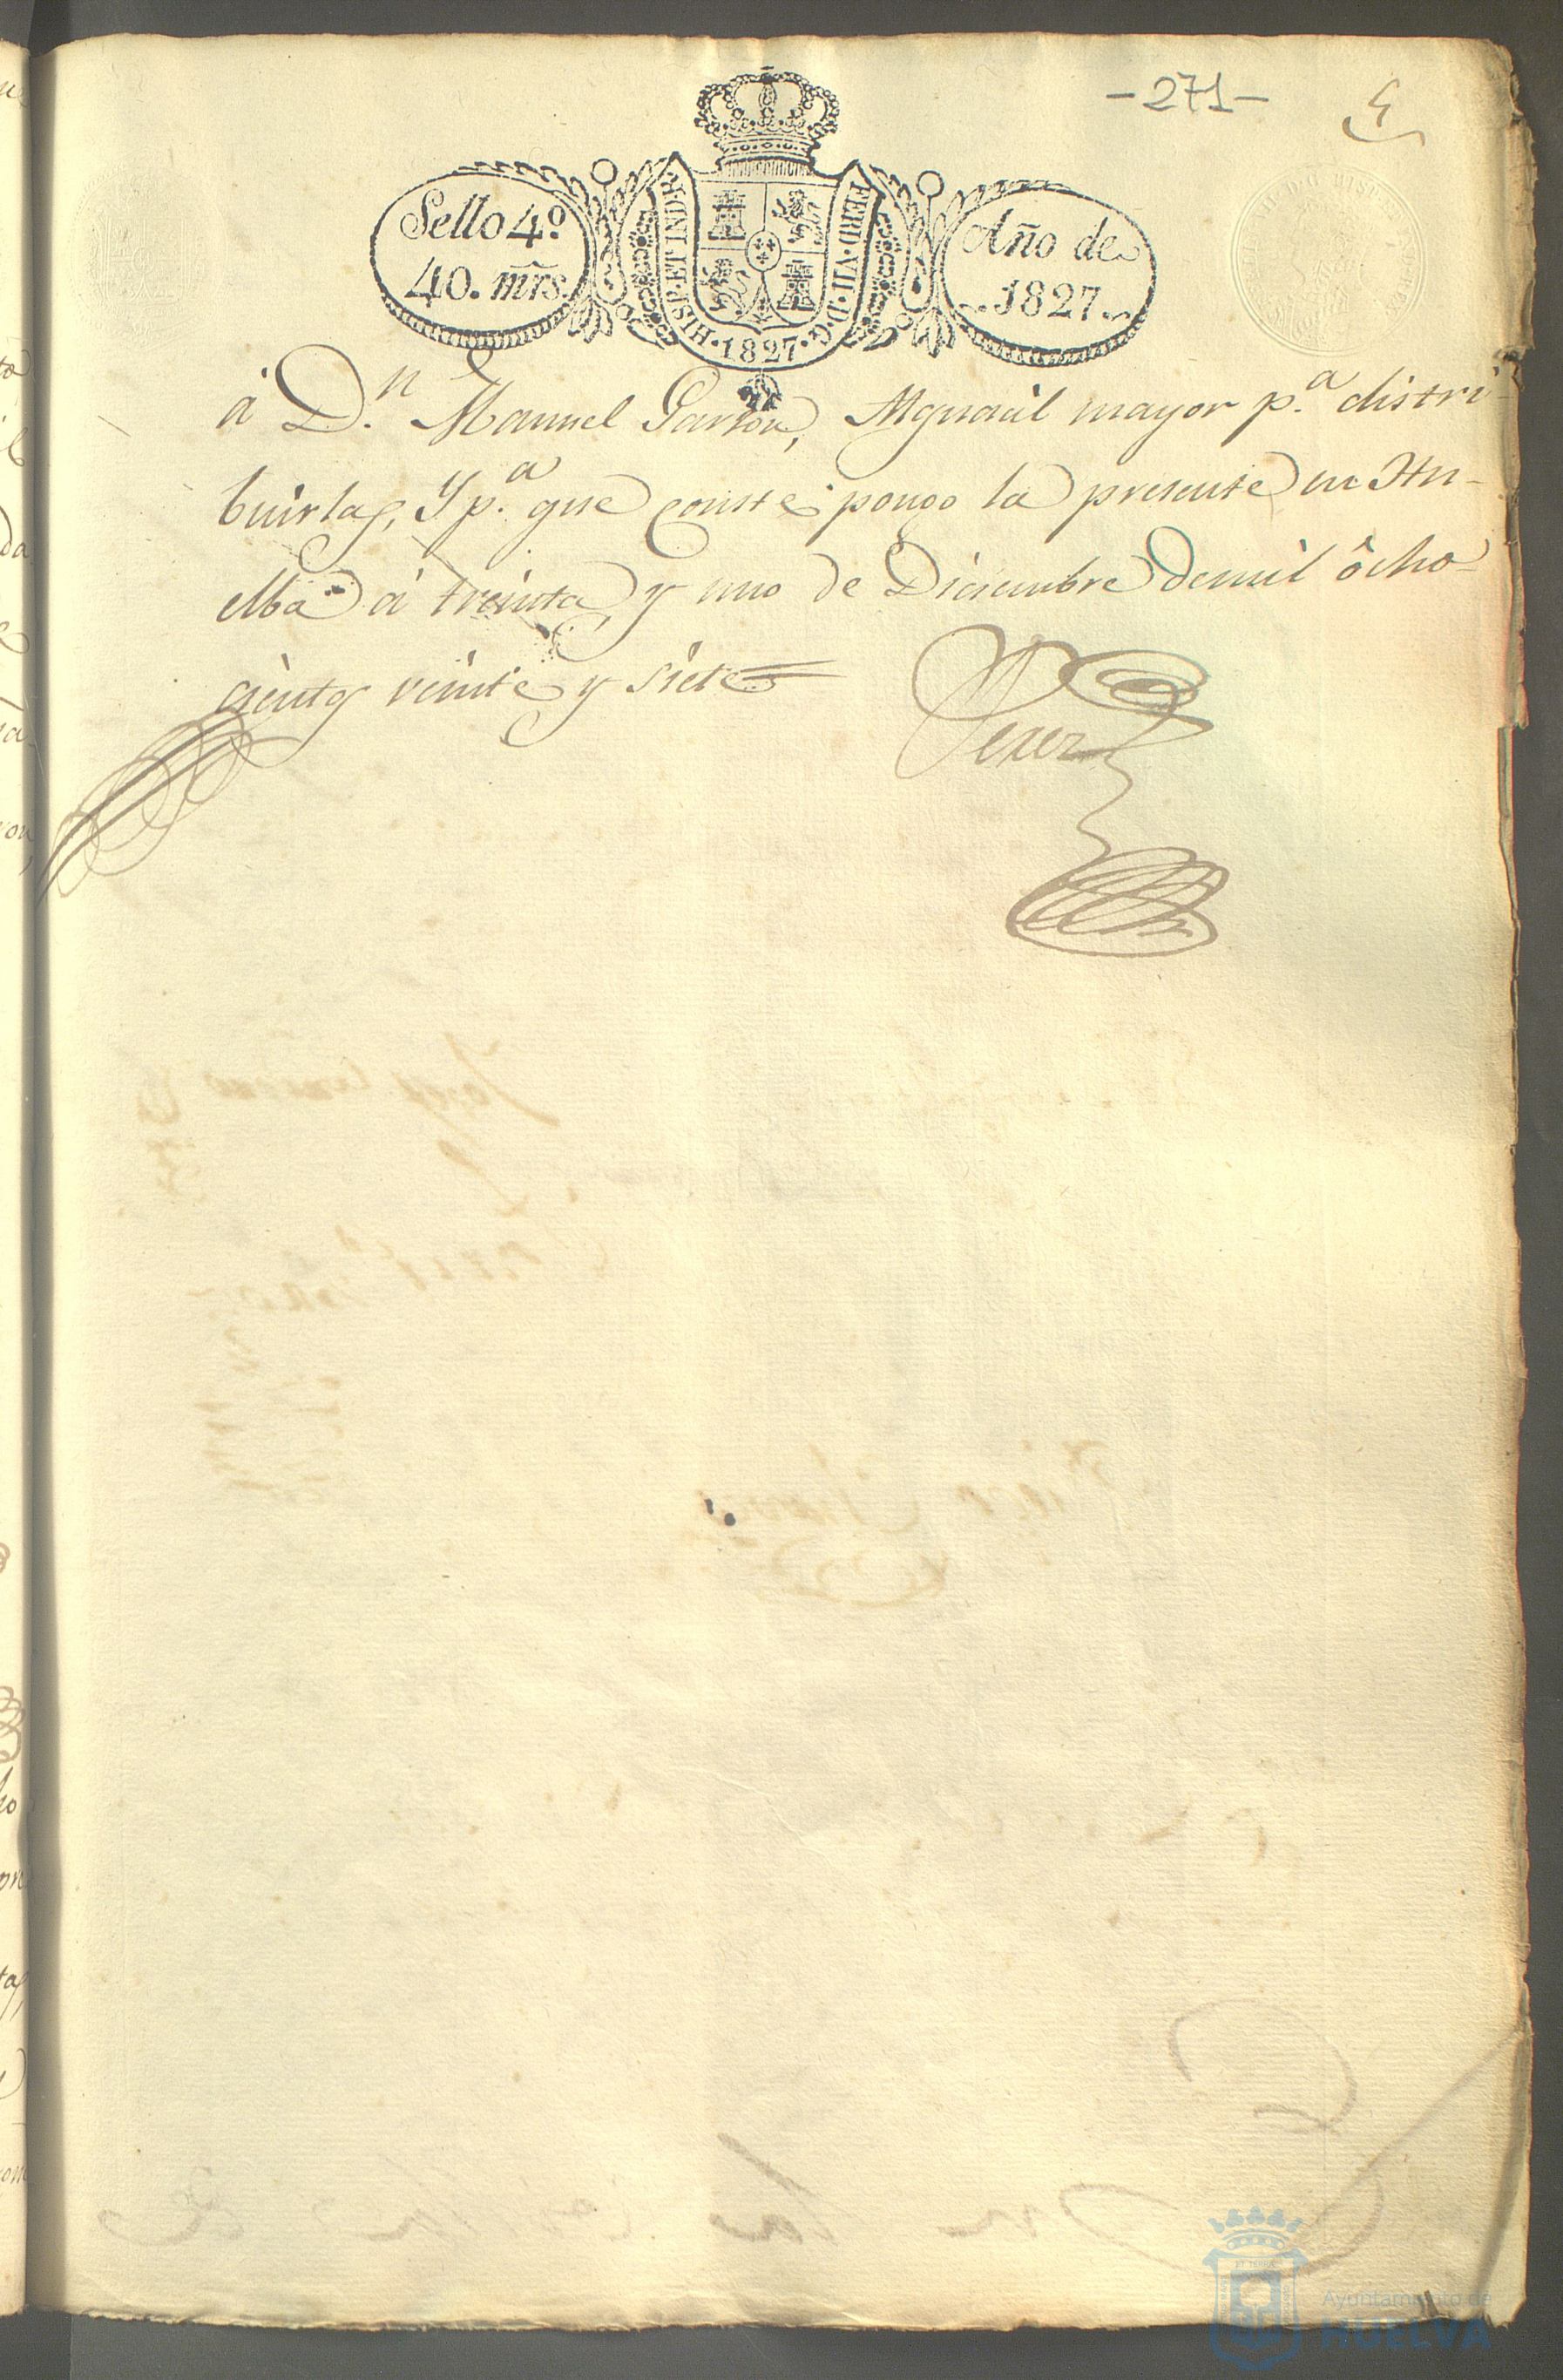 -271-
Sello 4º
40. mrs.
HISP·ET IND·R·
FERD·VII·D·G·
·1827·
Año de
1827
á D.n Manuel Garzon, Alguacil mayor p.a distri-
buirlas, Y p.a que conste pongo la presente en Hu-
elba á treinta, y uno de Diciembre de mil ôcho-
cientos veinte y siete
Perez
Ayuntamiento de
HUELVA